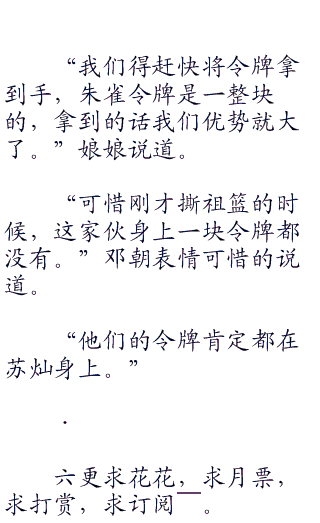 “我们得赶快将令牌拿
到手，朱雀令牌是一整块
的，拿到的话我们优势就大
了。”娘娘说道。
“可惜刚才撕祖篮的时
候，这家伙身上一块令牌都
没有。”邓朝表情可惜的说
道。
“他们的令牌肯定都在
苏灿身上。”
.
六更求花花，求月票，
求打赏，求订阅__。